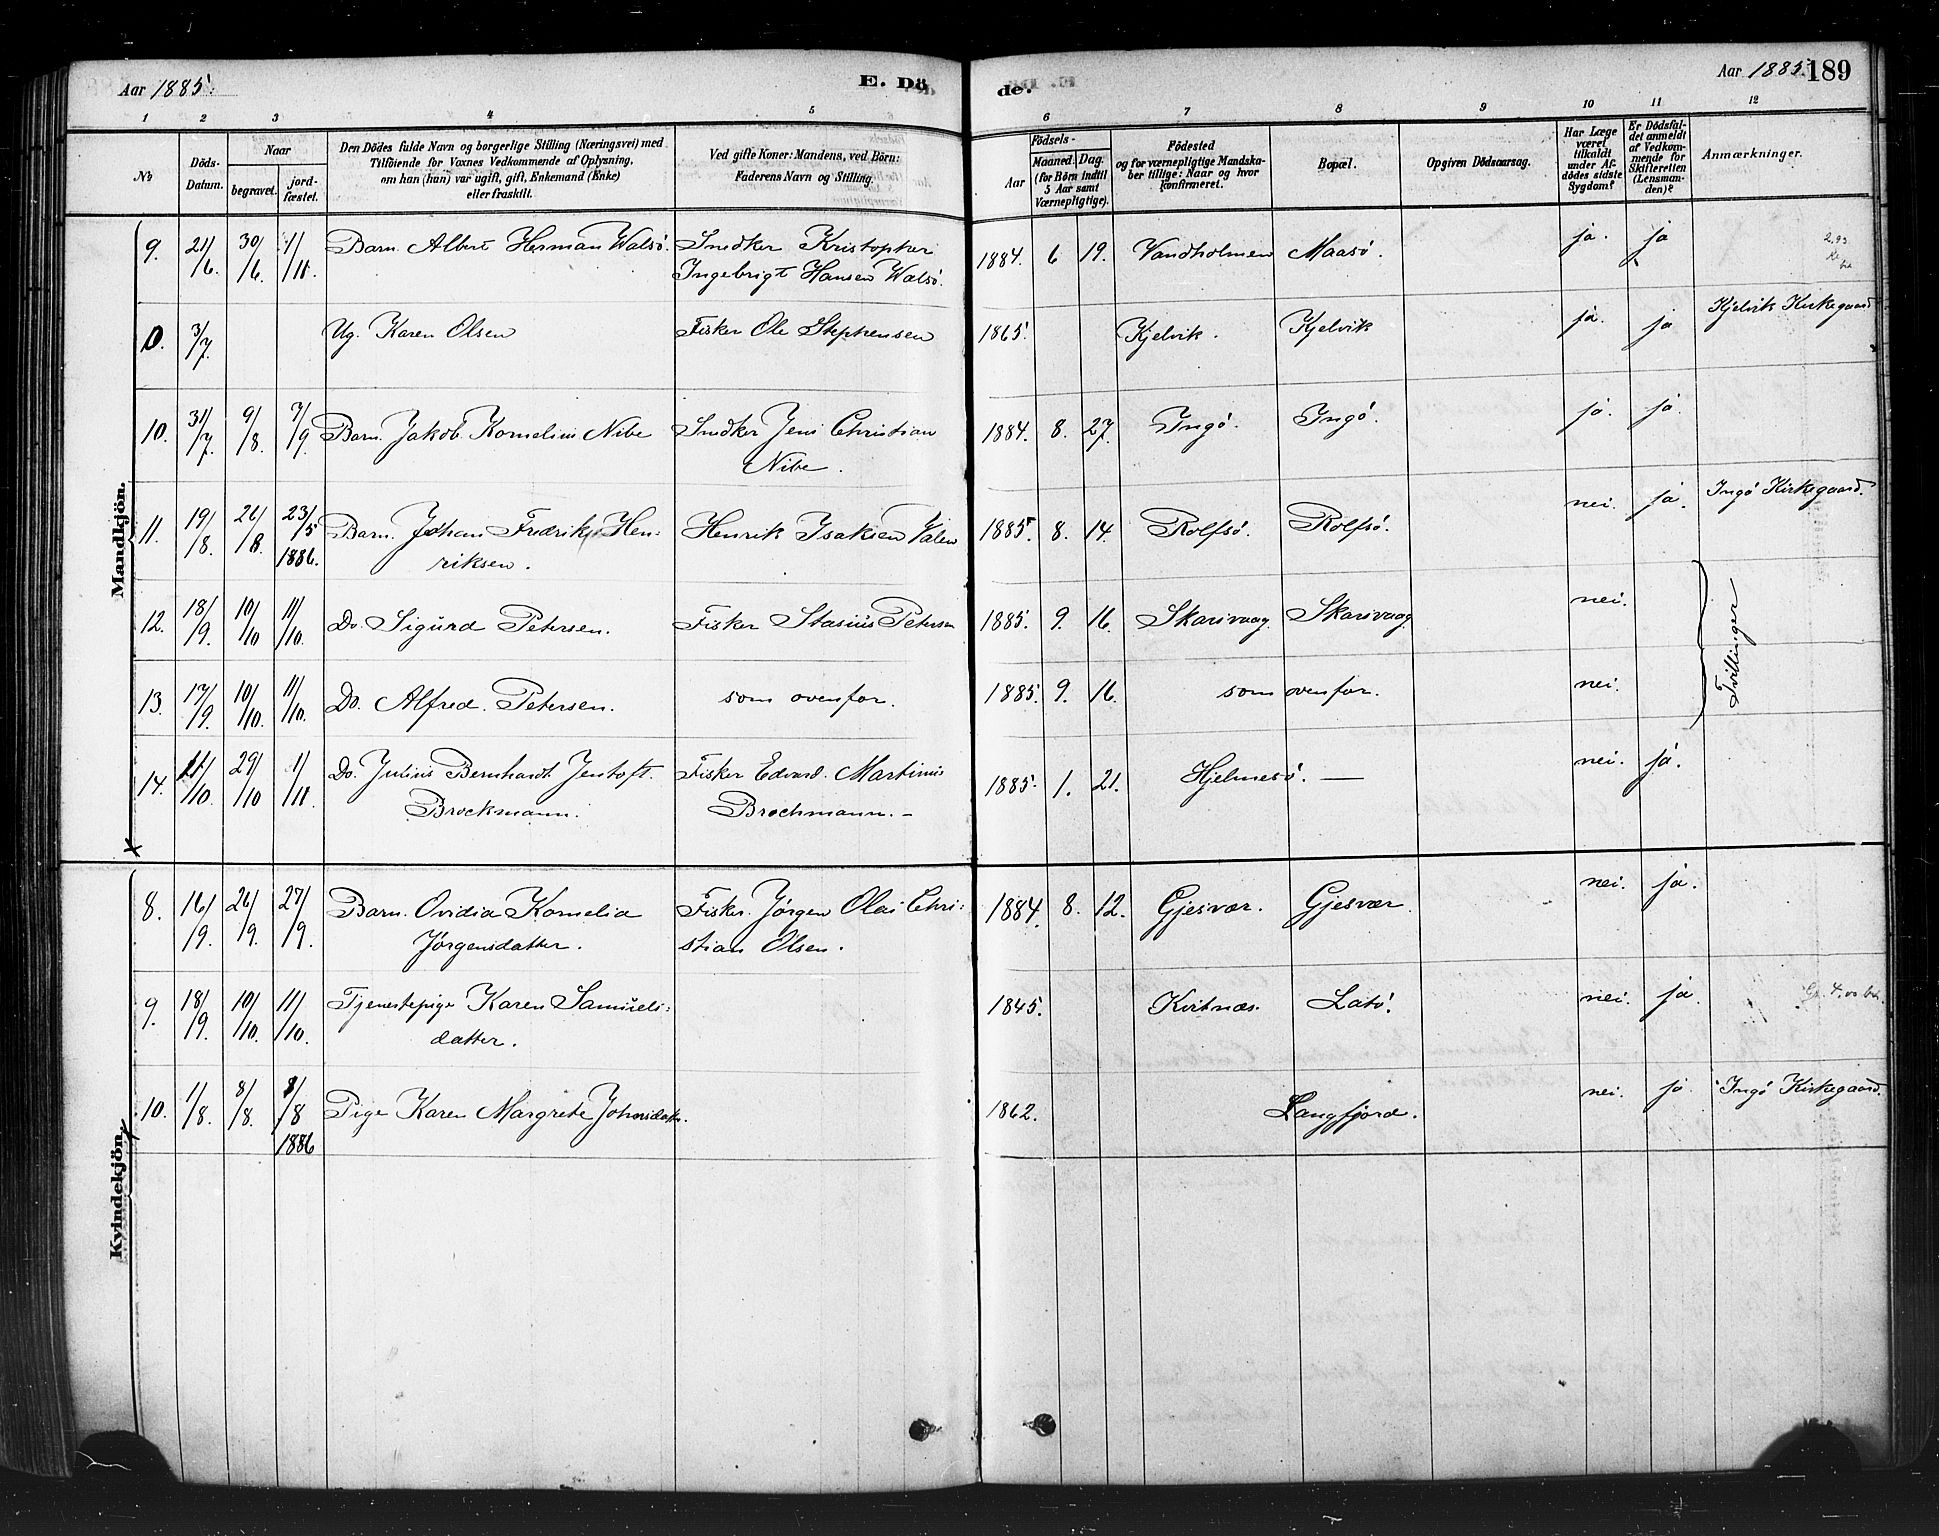 Aar 1885. E. Dö
de. Aar 1885. 189
1 2 3 4 5 6 7 8 9 10 11 12
No
Döds-
Datum.
Naar
begravet.
jord-
fæstet.
Den Dödes fulde Navn og borgerlige Stilling (Næringsvei) med
Tilföiende for Voxnes Vedkommende af Oplysning,
om han (hun) var ugift, gift, Enkemand (Enke)
eller fraskilt.
Ved gifte Koner: Mandens, ved Börn:
Faderens Navn og Stilling.
Födsels-
Aar
Maaned. Dag.
(for Börn indtil
5 Aar samt
Værnepligtige).
Födested
og for værnepligtige Mandska-
ber tillige: Naar og hvor
konfirmeret.
Bopæl.
Opgiven Dödsaarsag.
Har Læge
været
tilkaldt
under Af-
dödes sidste
Sygdom?
Er Dödsfal-
det anmeldt
af Vedkom-
mende for
Skifteretten
(Lensman-
den)?
Anmærkninger.
Mandkjön.
9. 21/6. 30/6. 1/11. Barn Albert Herman Walsö. Snedker Kristopher 1884. 6 19. Vandholmen Maasö. ja. ja 2,93
Ingebrigt Hansen Walsö.
0. 3/7. Ug. Karen Olsen Fisker Ole Stephensen 1865. Kjelvik. Kjelvik ja. ja Kjelvik Kirkegaard
10. 31/7. 9/8. 7/9. Barn. Jakob Kornelius Nibe Snedker Jens Christian 1884. 8. 27. Ingö. Ingö. ja. ja.
Nibe.
11. 19/8. 26/8. 23/5 Barn. Johan Fredrik Hen- Henrik Isaksen Valen 1885. 8. 14. Rolfsö. Rolfsö. nei. ja. Ingö Kirkegaard.
1886. riksen.
12. 18/9. 10/10 11/10. Do. Sigurd Petersen. Fisker Stasius Petersen 1885. 9. 16. Skarsvaag. Skarsvaag. nei. Tvillinger
13. 17/9. 10/10. 11/10. Do. Alfred. Petersen. som ovenfor. 1885. 9. 16. som ovenfor. nei.
14. 11/10. 29/10 1/11. Do. Julius Bernhardt Jentoft. Fisker Edvard. Martinus 1885. 1. 21. Hjelmesö. — nei. ja.
Brockmann. Brochmann. –
Kvindekjön.
8. 16/9. 26/9. 27/9. Barn. Ovidia Kornelia Fisker. Jörgen Olai Chri- 1884. 8. 12. Gjesvær. Gjesvær. nei. ja.
Jörgensdatter. stian Olsen.
9. 18/9. 10/10. 11/10. Tjenestepige Karen Samuels- 1845. Kvitnæs. Latö. nei. ja.
datter.
10. 1/8. 8/8. 8/8 Pige Karen Margrete Johnsdatter. 1862. Langfjord. nei. ja. Ingö Kirkegaard.
1886